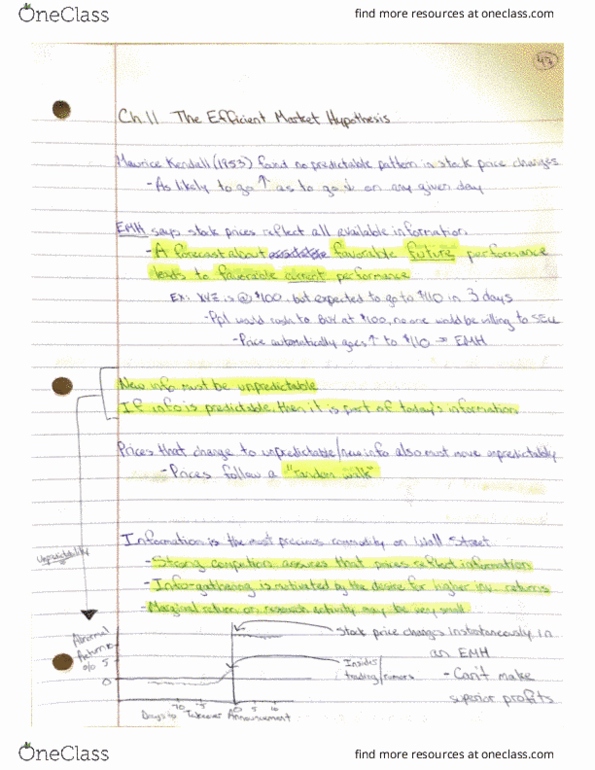 OneClass
find more resources at oneclass.com
47
Ch. 11 The Efficient Market Hypothesis
Maurice Kendall (1953) found no predictable pattern in stock price changes
- As likely to go ↑ as to go ↓ on any given day
EMH says stock prices reflect all available information
- A forecast about favorable future performance
leads to favorable current performance
Ex: XYZ is @ $100, but expected to go to $110 in 3 days
- Ppl would rush to BUY at $100, no one would be willing to SELL
- Price automatically goes ↑ to $110 → EMH
New info must be unpredictable
If info is predictable, then it is part of today's information
Prices that change to unpredictable/new info also must move unpredictably
- Prices follow a "random walk"
Information is the most precious commodity on Wall Street
Unpredictability
- Strong competition assures that prices reflect information
- Info-gathering is motivated by the desire for higher inv. returns
- Marginal return on research activity may be very small
Abnormal
Returns
% 5
0
Stock price changes instantaneously in
an EMH
Insider
trading/rumors
- Can't make
superior profits
-10 -5 0 5 10
Days to Takeover Announcement
OneClass
find more resources at oneclass.com